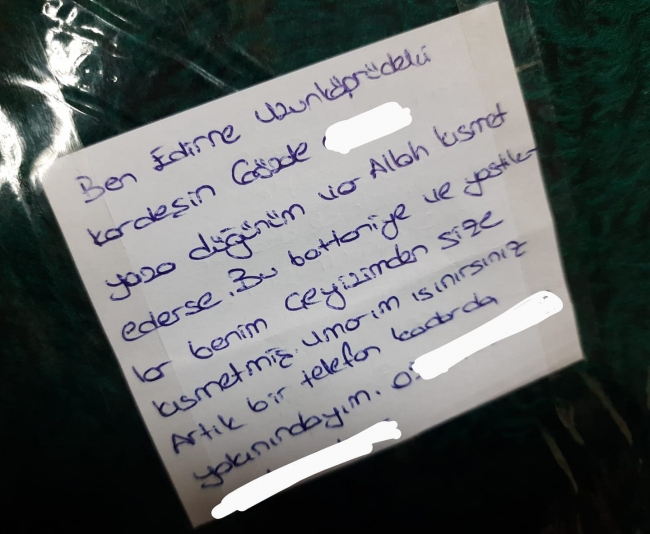 Ben Edirne Uzunköprüdeki
kardeşin Gözde
yaza düğünüm var Allah kısmet
ederse. Bu battaniye ve yastıklar
lar benim çeyizimden size
kısmetmiş umarım ısınırsınız
Artık bir telefon kadarda
yakınındayım. 0